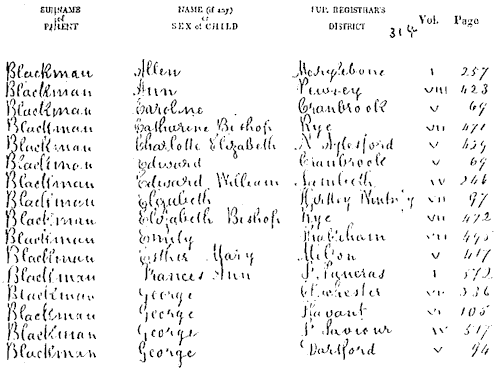 SURNAME of PARENT NAME (if any) or SEX of CHILD SUP. REGISTRAR'S DISTRICT Vol. Page
314
Blackman Allen Marylebone I 257
Blackman Ann Pewsey VIII 423
Blackman Caroline Cranbrook V 69
Blackman Catharine Bishop Rye VII 471
Blackman Charlotte Elizabeth N Aylesford V 429
Blackman Edward Cranbrook V 69
Blackman Edward William Lambeth IV 246
Blackman Elizabeth Hartley Wintney VII 97
Blackman Elizabeth Bishop Rye VII 472
Blackman Emily Hailsham VII 495
Blackman Esther Mary Milton V 417
Blackman Frances Ann St Pancras I 372
Blackman George Chichester VII 336
Blackman George Havant VII 105
Blackman George St Saviour IV 517
Blackman George Dartford V 94